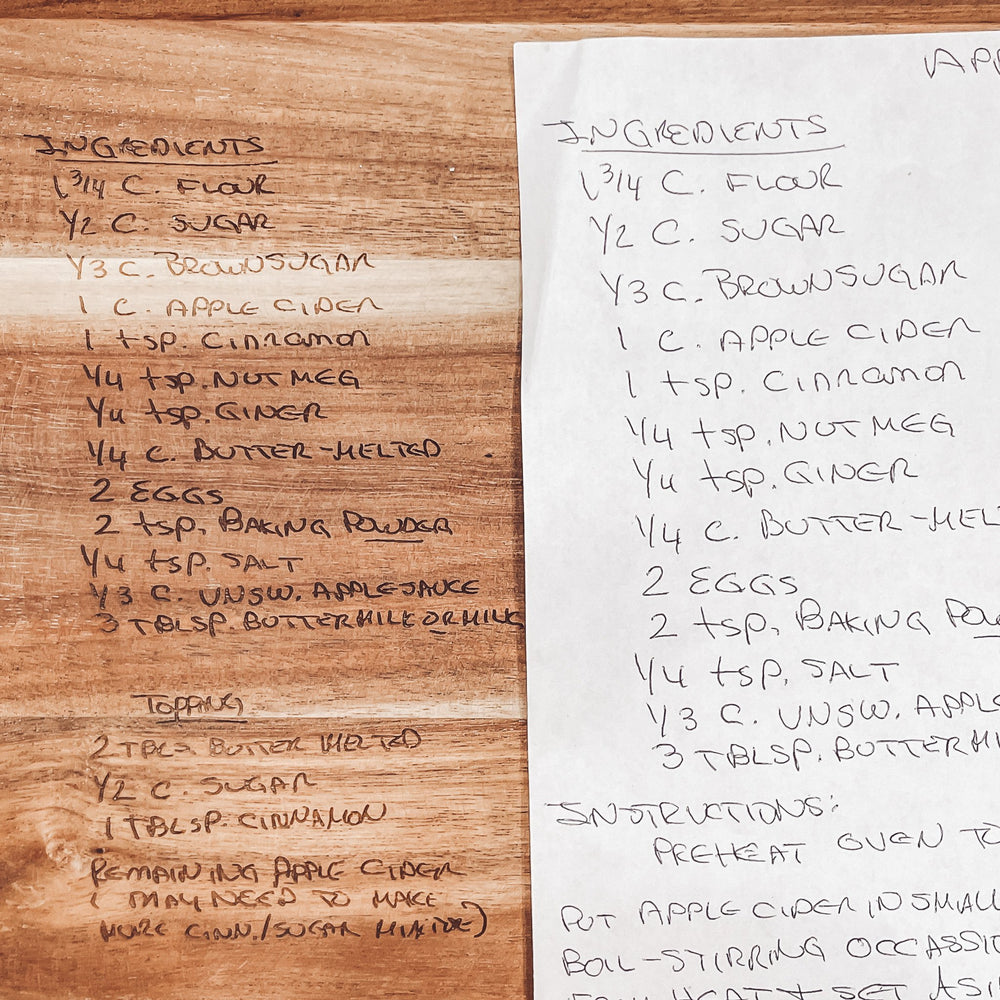 INGREDIENTS
1 3/4 C. FLOUR
1/2 C. SUGAR
1/3 C. BROWN SUGAR
1 C. APPLE CIDER
1 tsp. Cinnamon
1/4 tsp. NUTMEG
1/4 tsp. GINER
1/4 C. BUTTER-MELTED
2 EGGS
2 tsp. BAKING POWDER
1/4 tsp. SALT
1/3 C. UNSW. APPLESAUCE
3 TBLSP. BUTTERMILK OR MILK
TOPPING
2 TBLS. BUTTER MELTED
1/2 C. SUGAR
1 TBLSP. CINNAMON
REMAINING APPLE CIDER
( MAY NEED TO MAKE
MORE CINN./SUGAR MIXTURE)
APP
INGREDIENTS
1 3/4 C. FLOUR
1/2 C. SUGAR
1/3 C. BROWN SUGAR
1 C. APPLE CIDER
1 tsp. Cinnamon
1/4 tsp. NUTMEG
1/4 tsp. GINER
1/4 C. BUTTER-MEL
2 EGGS
2 tsp. BAKING POW
1/4 tsp. SALT
1/3 C. UNSW. APPLE
3 TBLSP. BUTTERMI
INSTRUCTIONS:
PREHEAT OVEN TO
PUT APPLE CIDER IN SMALL
BOIL-STIRRING OCCASSIO
FROM HEAT + SET ASID